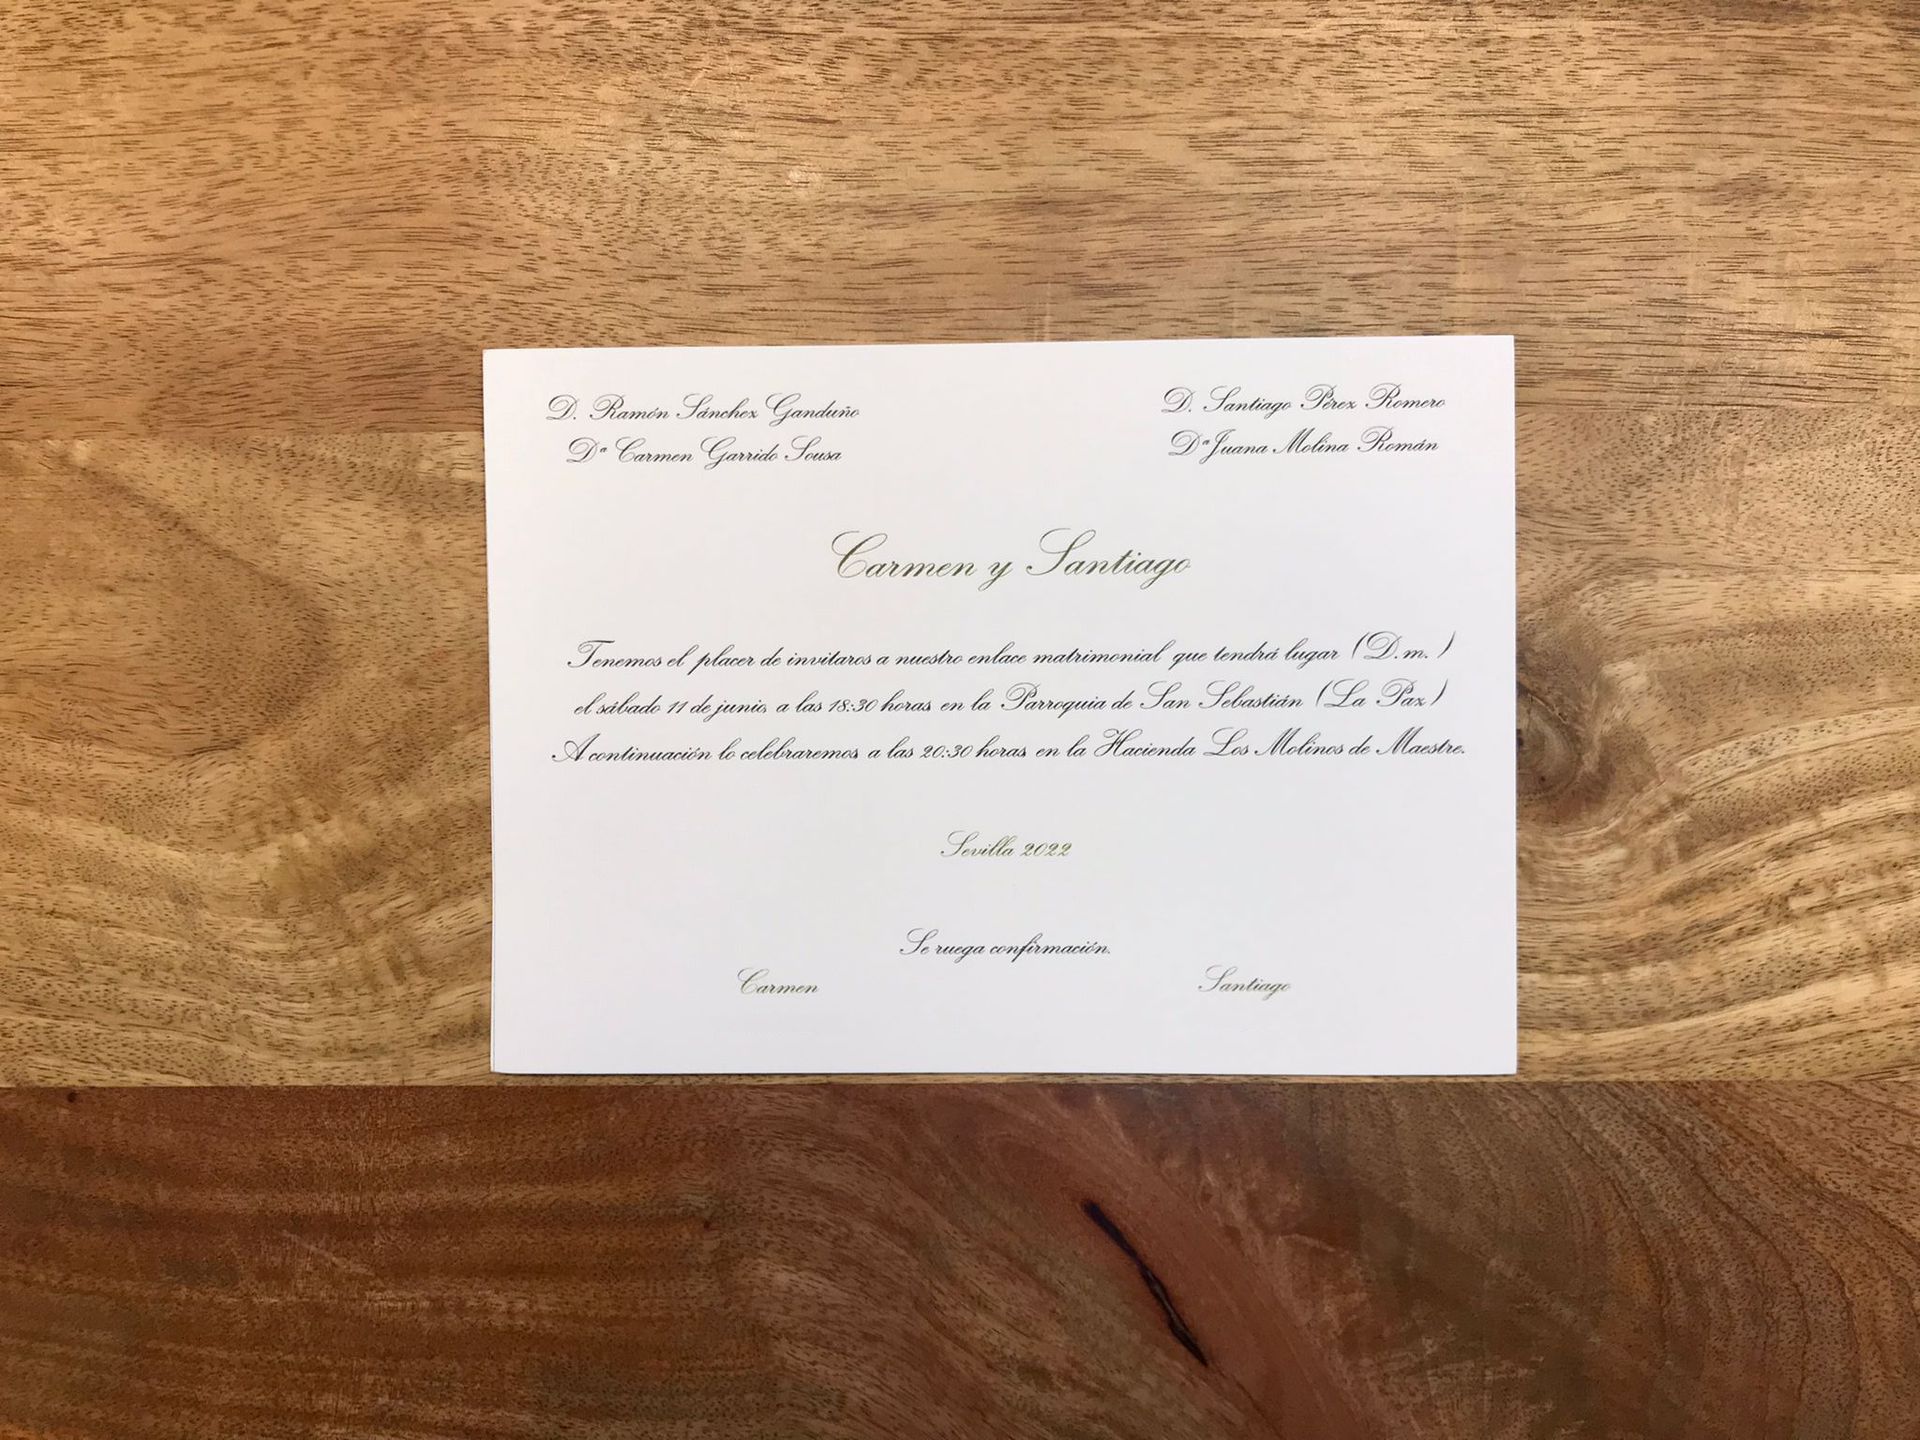 D. Ramón Sánchez Ganduño
Dª Carmen Garrido Sousa
D. Santiago Pérez Romero
Dª Juana Molina Román
Carmen y Santiago
Tenemos el placer de invitaros a nuestro enlace matrimonial que tendrá lugar (D.m.)
el sábado 11 de junio, a las 18:30 horas en la Parroquia de San Sebastián (La Paz)
A continuación lo celebraremos, a las 20:30 horas en la Hacienda Los Molinos de Maestre.
Sevilla 2022
Se ruega confirmación.
Carmen
Santiago